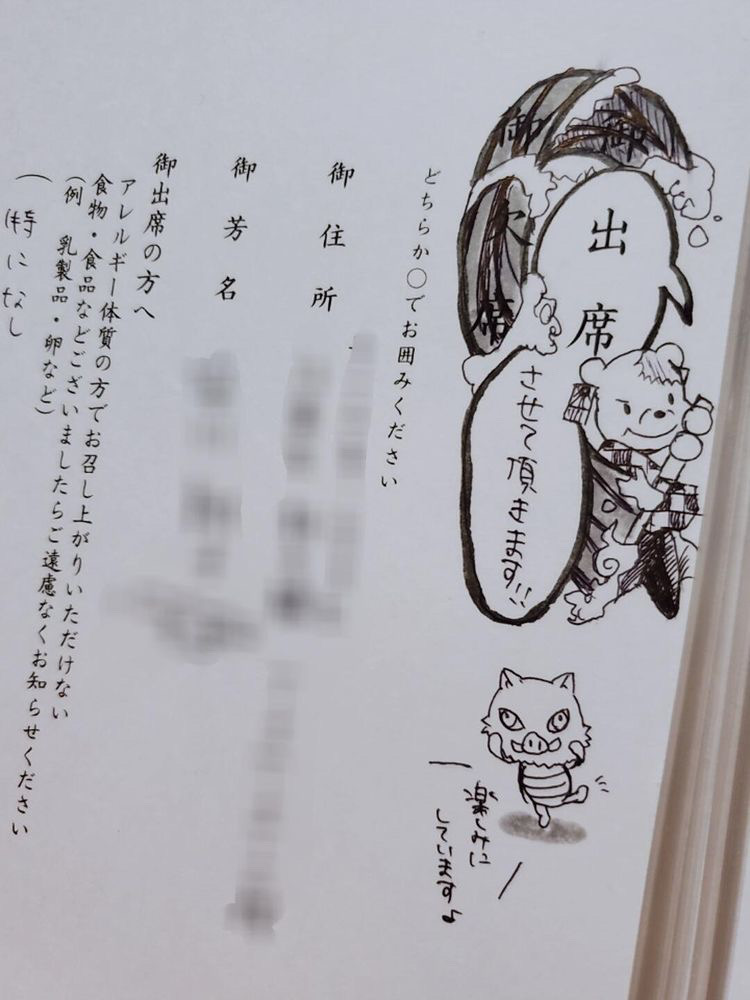 御出席
させて頂きます!!
御欠席
楽しみに
しています♪
どちらか○でお囲みください
御住所
御芳名
御出席の方へ
アレルギー体質の方でお召し上がりいただけない
食物・食品などございましたらご遠慮なくお知らせください
(例 乳製品・卵など)
(特になし